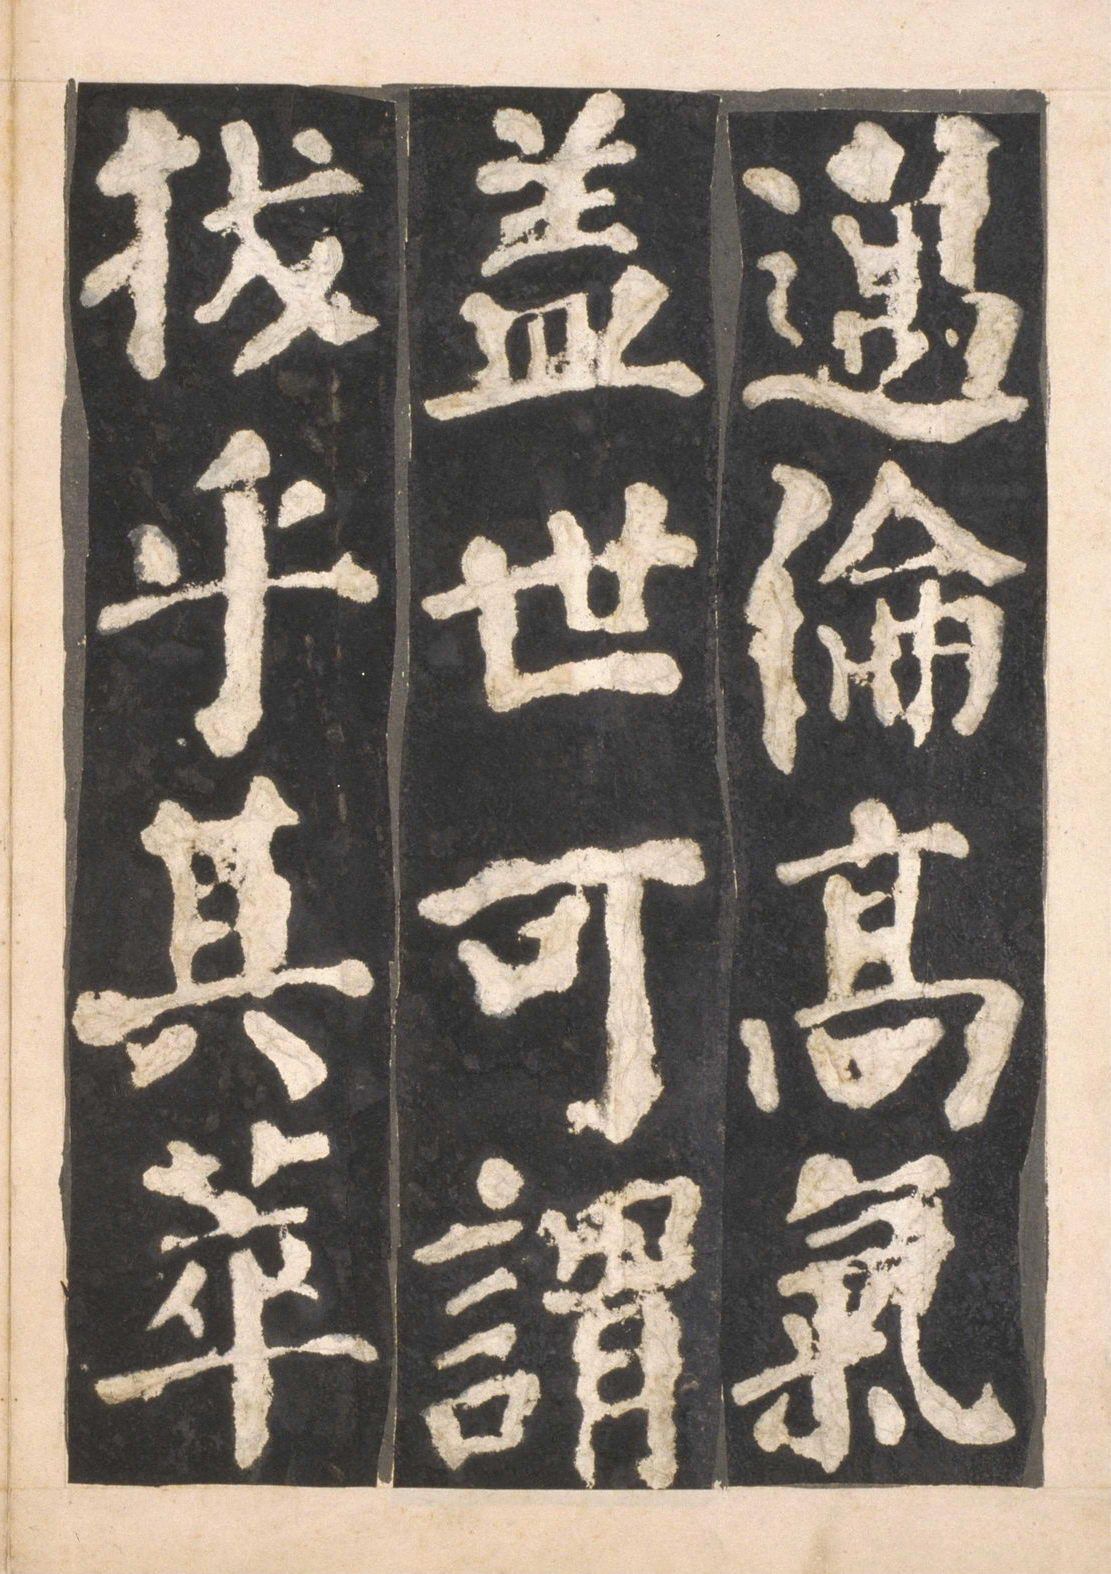 邁倫髙氣
盖世可謂
拔乎其萃